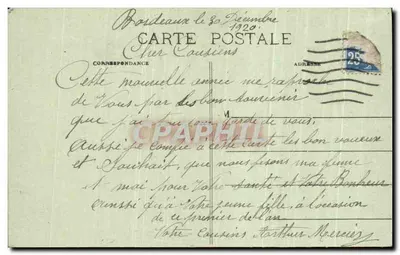 Bordeaux le 30 Décembre
1920.
Cher Cousins
CARTE POSTALE
CORRESPONDANCE
ADRESSE
25
Cette nouvelle année me raproche
de Vous par les bon souvenir
que j'ai de vous.
CPARAMA
Aussi je confie à cette carte les bon voueux
et Souhait, que nous fesons ma femme
et moi pour Votre Santé et Votre Bonheur
Aussi qu'à Votre jeune fille, à l'occasion
de ce premier de l'an
Votre Cousins Arthur Mercier